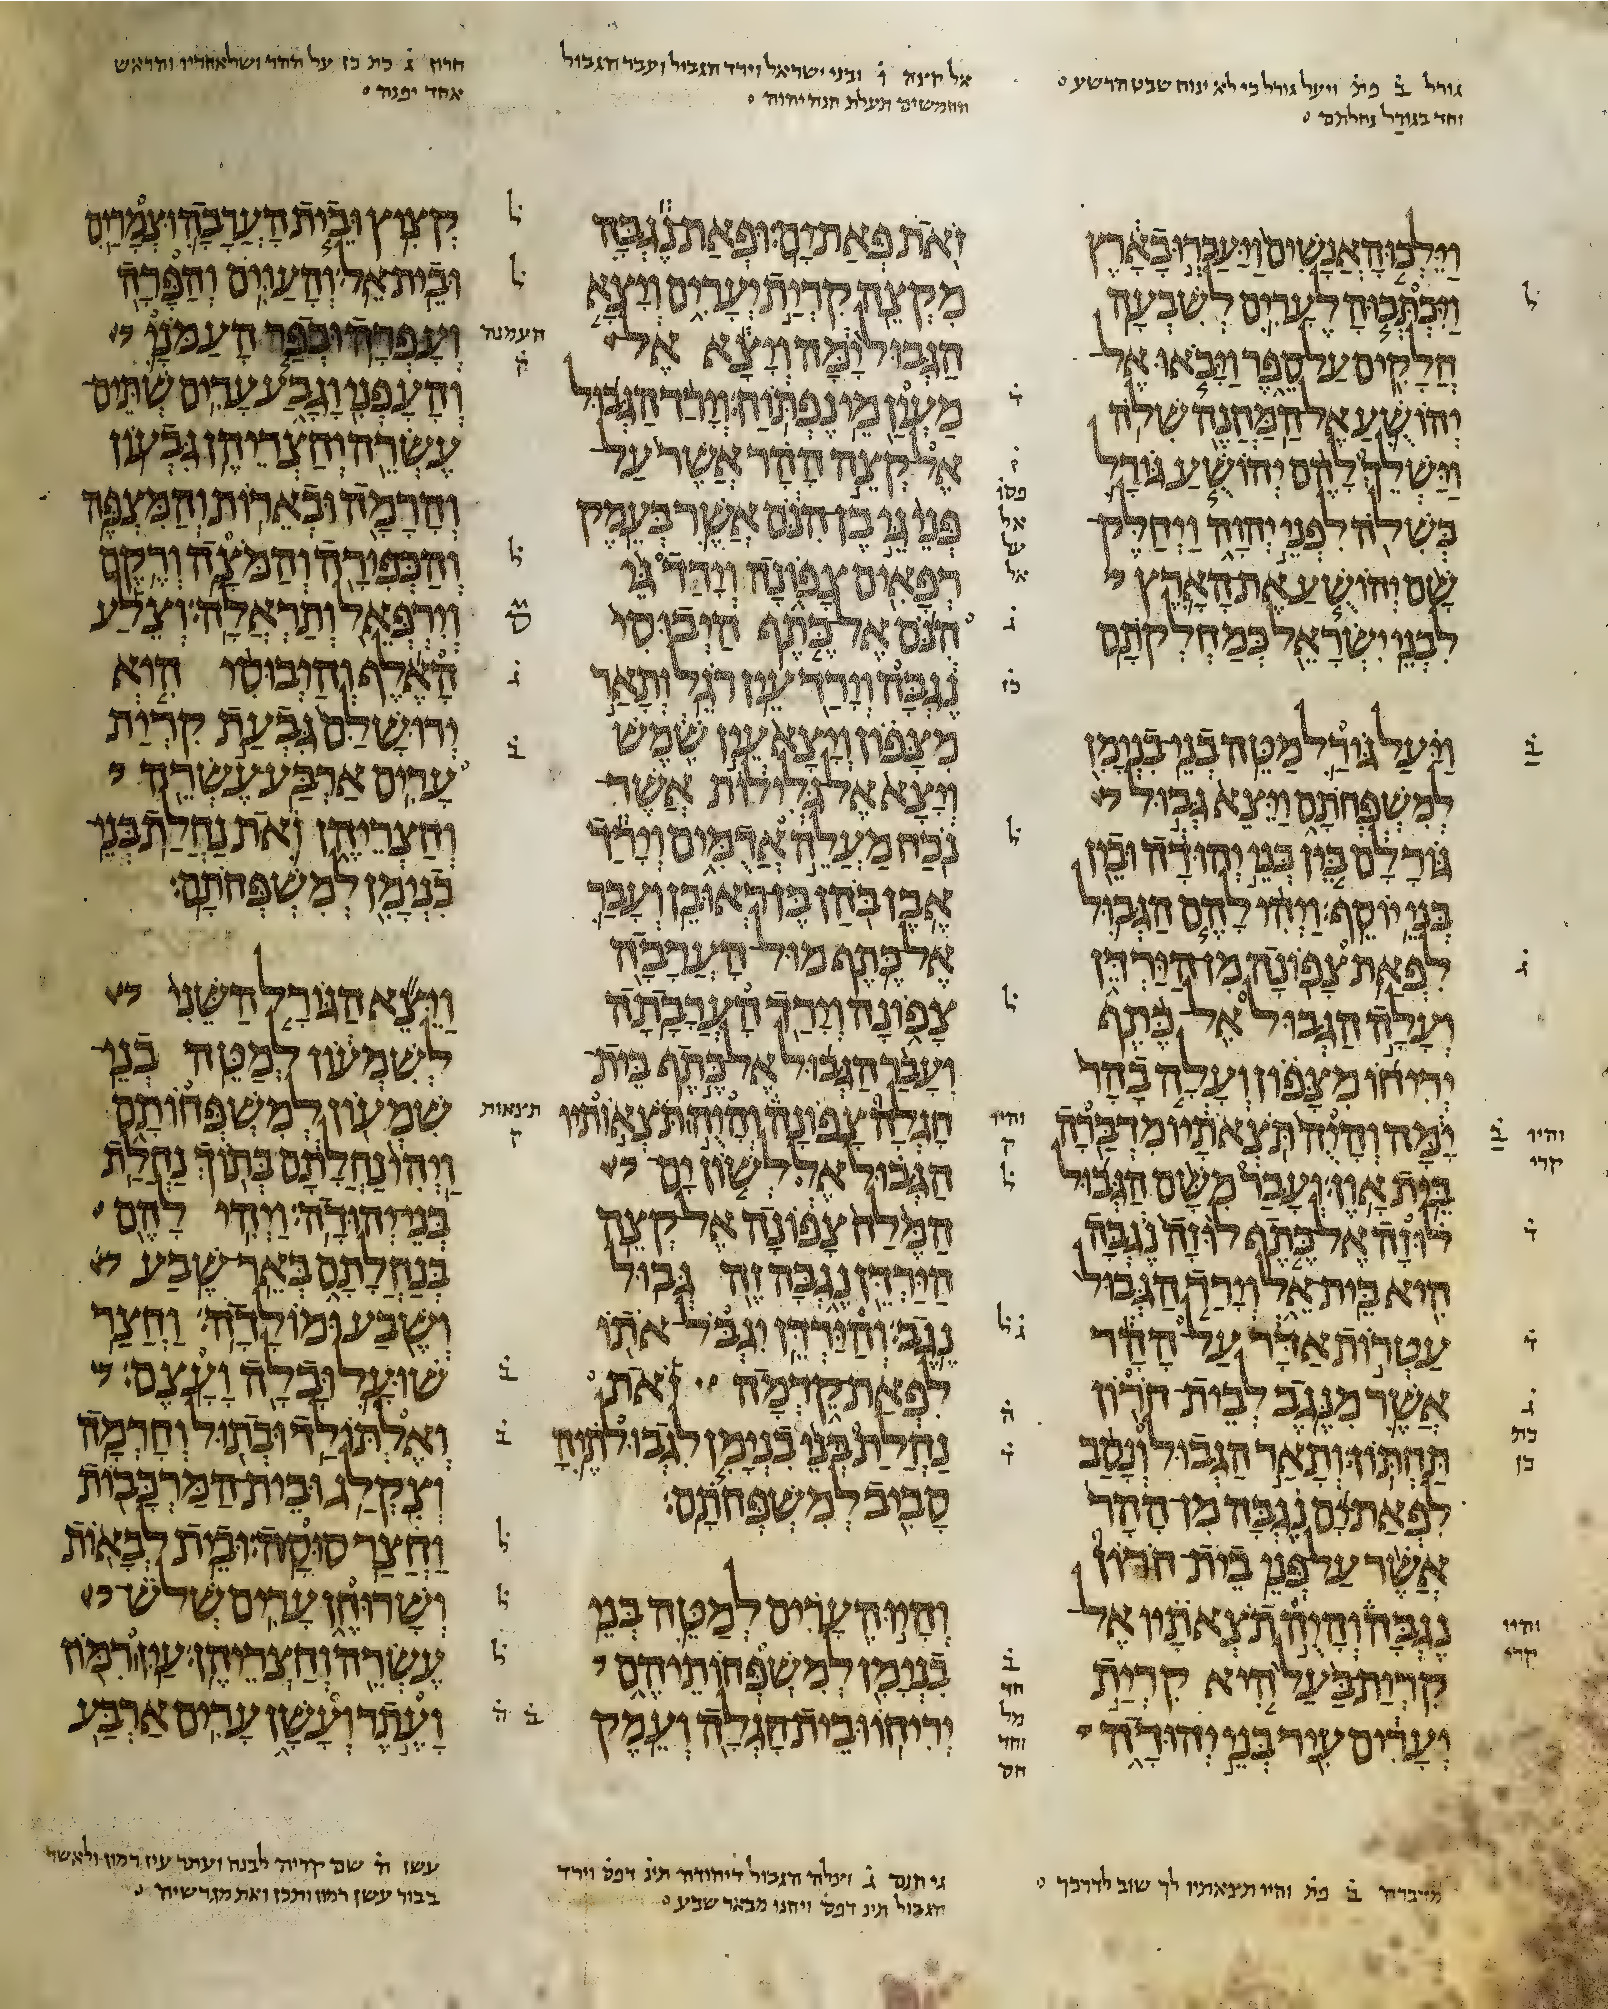 גורל ב פת ויעל גורל כי לא ינוח שבט הרשע
וחד בגורל נחלתם
וילכו האנשים ויעברו בארץ
ויכתבוה לערים לשבעה
חלקים על ספר ויבאו אל
יהושע אל המחנה שלה
וישלך להם יהושע גורל
בשלה לפני יהוה ויחלק
שם יהושע את הארץ
לבני ישראל כמחלקתם
ויעל גורל למטה בני בנימן
למשפחתם ויצא גבול
גורלם בין בני יהודה ובין
בני יוסף ויהי להם הגבול
לפאת צפונה מן הירדן
ועלה הגבול אל כתף
יריחו מצפון ועלה בהר
ימה והיה תצאתיו מדברה
בית און ועבר משם הגבול
לוזה אל כתף לוזה נגבה
היא בית אל וירד הגבול
עטרות אדר על ההר
אשר מנגב לבית חרון
תחתון ותאר הגבול ונסב
לפאת ים נגבה מן ההר
אשר על פני בית חרון
נגבה והיה תצאתיו אל
קרית בעל היא קרית
יערים עיר בני יהודה
ל
ב
ג
והיו
קרי
ב
ד
ד
ג
בת
כן
והיו
קרי
מדברה ב פת והיו תצאתיו לך שוב לדרכך
אל חינה ו ובני ישראל וירד הגבול ועבר הגבול
וחמשים תעלת חנה יהוה
זאת פאת ים ופאת נגבה
מקצה קרית יערים ויצא
הגבול ימה ויצא אל
מעין מי נפתוח וירד הגבול
אל קצה ההר אשר על
פני גי בן הנם אשר בעמק
רפאים צפונה וירד גי
הנם אל כתף היבוסי
נגבה וירד עין רגל ותאר
מצפון ויצא עין שמש
ויצא אל גלילות אשר
נכח מעלה אדמים וירד
אבן בהן בן ראובן ועבר
אל כתף מול הערבה
צפונה וירד הערבתה
ועבר הגבול אל כתף בית
חגלה צפונה והיה תצאותיו
הגבול אל לשון ים
המלח צפונה אל קצה
הירדן נגבה זה גבול
נגב והירדן יגבל אתו
לפאת קדמה זאת
נחלת בני בנימן לגבולתיה
סביב למשפחתם
והיו הערים למטה בני
בנימן למשפחותיהם
יריחו ובית חגלה ועמק
ד
ז
פסו
אל
על
אל
ג
כז
ל
ל
והיו
ק
ל
ג ל
ה
ד
ב
חד
מל
וחד
חס
גי הנם ג ועלה הגבול דיהודה תינ דפס וירד
הגבול תינ דפס ויחנו מבאר שבע
חרוז ג בת כז על ההר ושלאחריו והראש
אחד יפנה
קציץ ובית הערבה וצמרים
ובית אל והעוים והפרה
ועפרה וכפר העמני
והעפני וגבע ערים שתים
עשרה וחצריהן גבעון
והרמה ובארות והמצפה
והכפירה והמצה ורקם
וירפאל ותראלה וצלע
האלף והיבוסי היא
ירושלם גבעת קרית
ערים ארבע עשרה
וחצריהן זאת נחלת בני
בנימן למשפחתם
ויצא הגורל השני
לשמעון למטה בני
שמעון למשפחותם
ויהי נחלתם בתוך נחלת
בני יהודה ויהי להם
בנחלתם באר שבע
ושבע ומולדה וחצר
שועל ובלה ועצם
ואלתולד ובתול וחרמה
וצקלג ובית המרכבות
וחצר סוסה ובית לבאות
ושרוחן ערים שלש
עשרה וחצריהן עין רמון
ועתר ועשן ערים ארבע
ל
ל
העמנה
ק
ל
ס
ג
ב
תינאות
ק
ב
ב
ל
ל
ל
ב ה
עשן ה שם קריה לבנה ועתר עין רמון ולאשר
בבור עשן רמון ותכן ואת מגרשיה